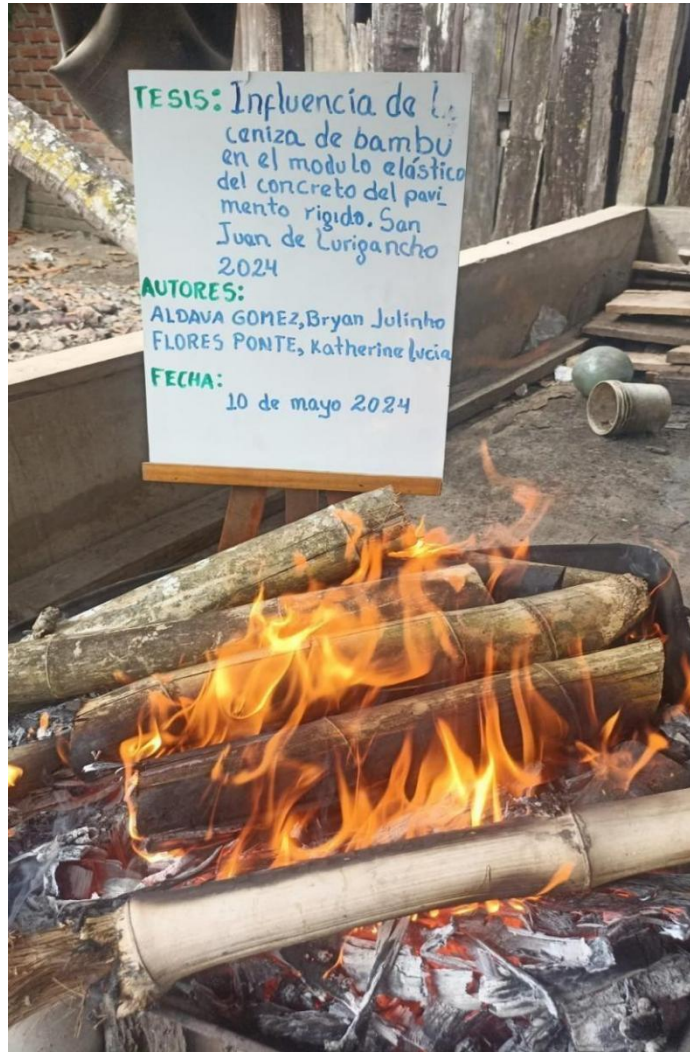 TESIS: Influencia de l
ceniza de bambu
en el modulo elástico
del concreto del pavi_
mento rigido. San
Juan de Lurigancho
2024
AUTORES:
ALDAVA GOMEZ, Bryan Julinho
FLORES PONTE, Katherine Lucia
FECHA:
10 de mayo 2024